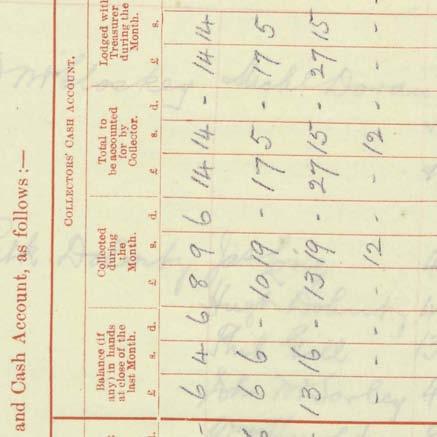 and Cash Account, as follows :—
COLLECTORS' CASH ACCOUNT.
Balance (if
any) in hands
at close of the
last Month.
Collected
during
the
Month.
Total to
be accounted
for by
Collector.
Lodged with
Treasurer
during the
Month.
d. £ s. d. £ s. d. £ s. d. £ s.
- 6 4 6 8 9 6 14 14 - 14 14
6 6 - 10 19 - 17 5 - 17 5
13 16 - 13 19 - 27 15 - 27 15
- - - - 12 - - 12 - - -